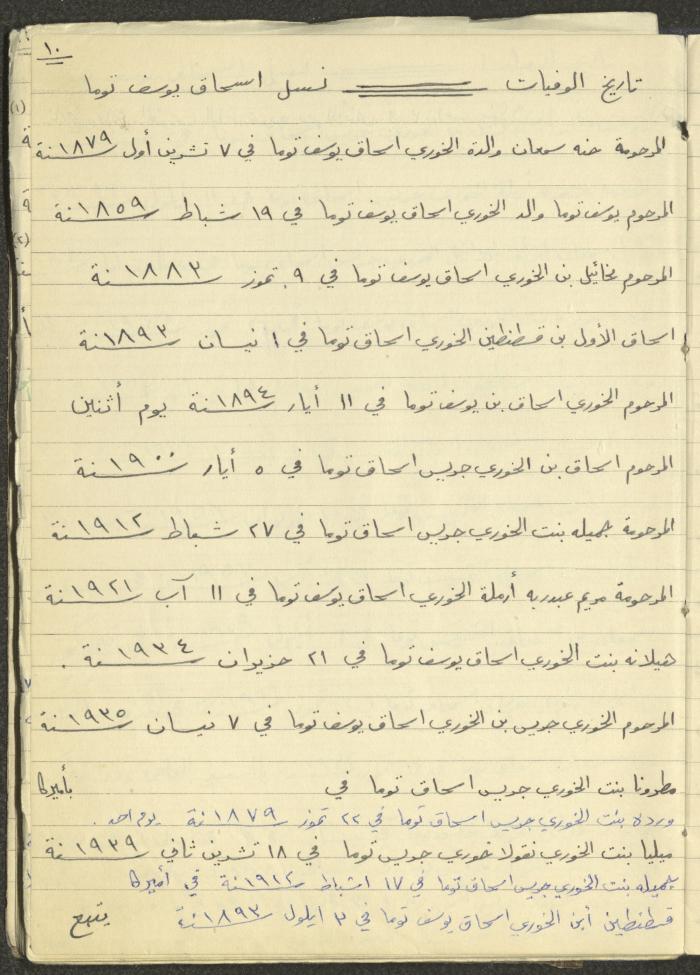 ١٠
تاريخ الوفيات ــــــــ نسل اسحاق يوسف توما
المرحومة حنه سمعان والدة الخوري اسحاق يوسف توما في ٧ تشرين أول سنة ١٨٧٩
المرحوم يوسف توما والد الخوري اسحاق يوسف توما في ١٩ شباط سنة ١٨٥٩
المرحوم مخائيل بن الخوري اسحاق يوسف توما في ٩ تموز سنة ١٨٨٣
اسحاق الأول بن قسطنطين الخوري اسحاق توما في ١ نيسان سنة ١٨٩٣
المرحوم الخوري اسحاق بن يوسف توما في ١١ أيار سنة ١٨٩٤ يوم أثنين
المرحوم اسحاق بن الخوري جريس اسحاق توما في ٥ أيار سنة ١٩٠٠
المرحومة جميله بنت الخوري جريس اسحاق توما في ٢٧ شباط سنة ١٩١٢
المرحومة مريم عبدربه أرملة الخوري اسحاق يوسف توما في ١١ آب سنة ١٩٢١
هيلانه بنت الخوري اسحاق يوسف توما في ٢١ حزيران سنة ١٩٣٤ .
المرحوم الخوري جريس بن الخوري اسحاق يوسف توما في ٧ نيسان سنة ١٩٣٥
مطرونا بنت الخوري جريس اسحاق توما في بأميركا
ورده بنت الخوري جريس اسحاق توما في ٢٢ تموز سنة ١٨٧٩ يوم احد .
ميليا بنت الخوري نقولا خوري جريس توما في ١٨ تشرين ثاني سنة ١٩٣٩
جميله بنت الخوري جريس اسحاق توما في ١٧ اشباط سنة ١٩١٢ في أميركا
قسطنطين أبن الخوري اسحاق يوسف توما في ٣ ايلول سنة ١٨٩٣ يتبع